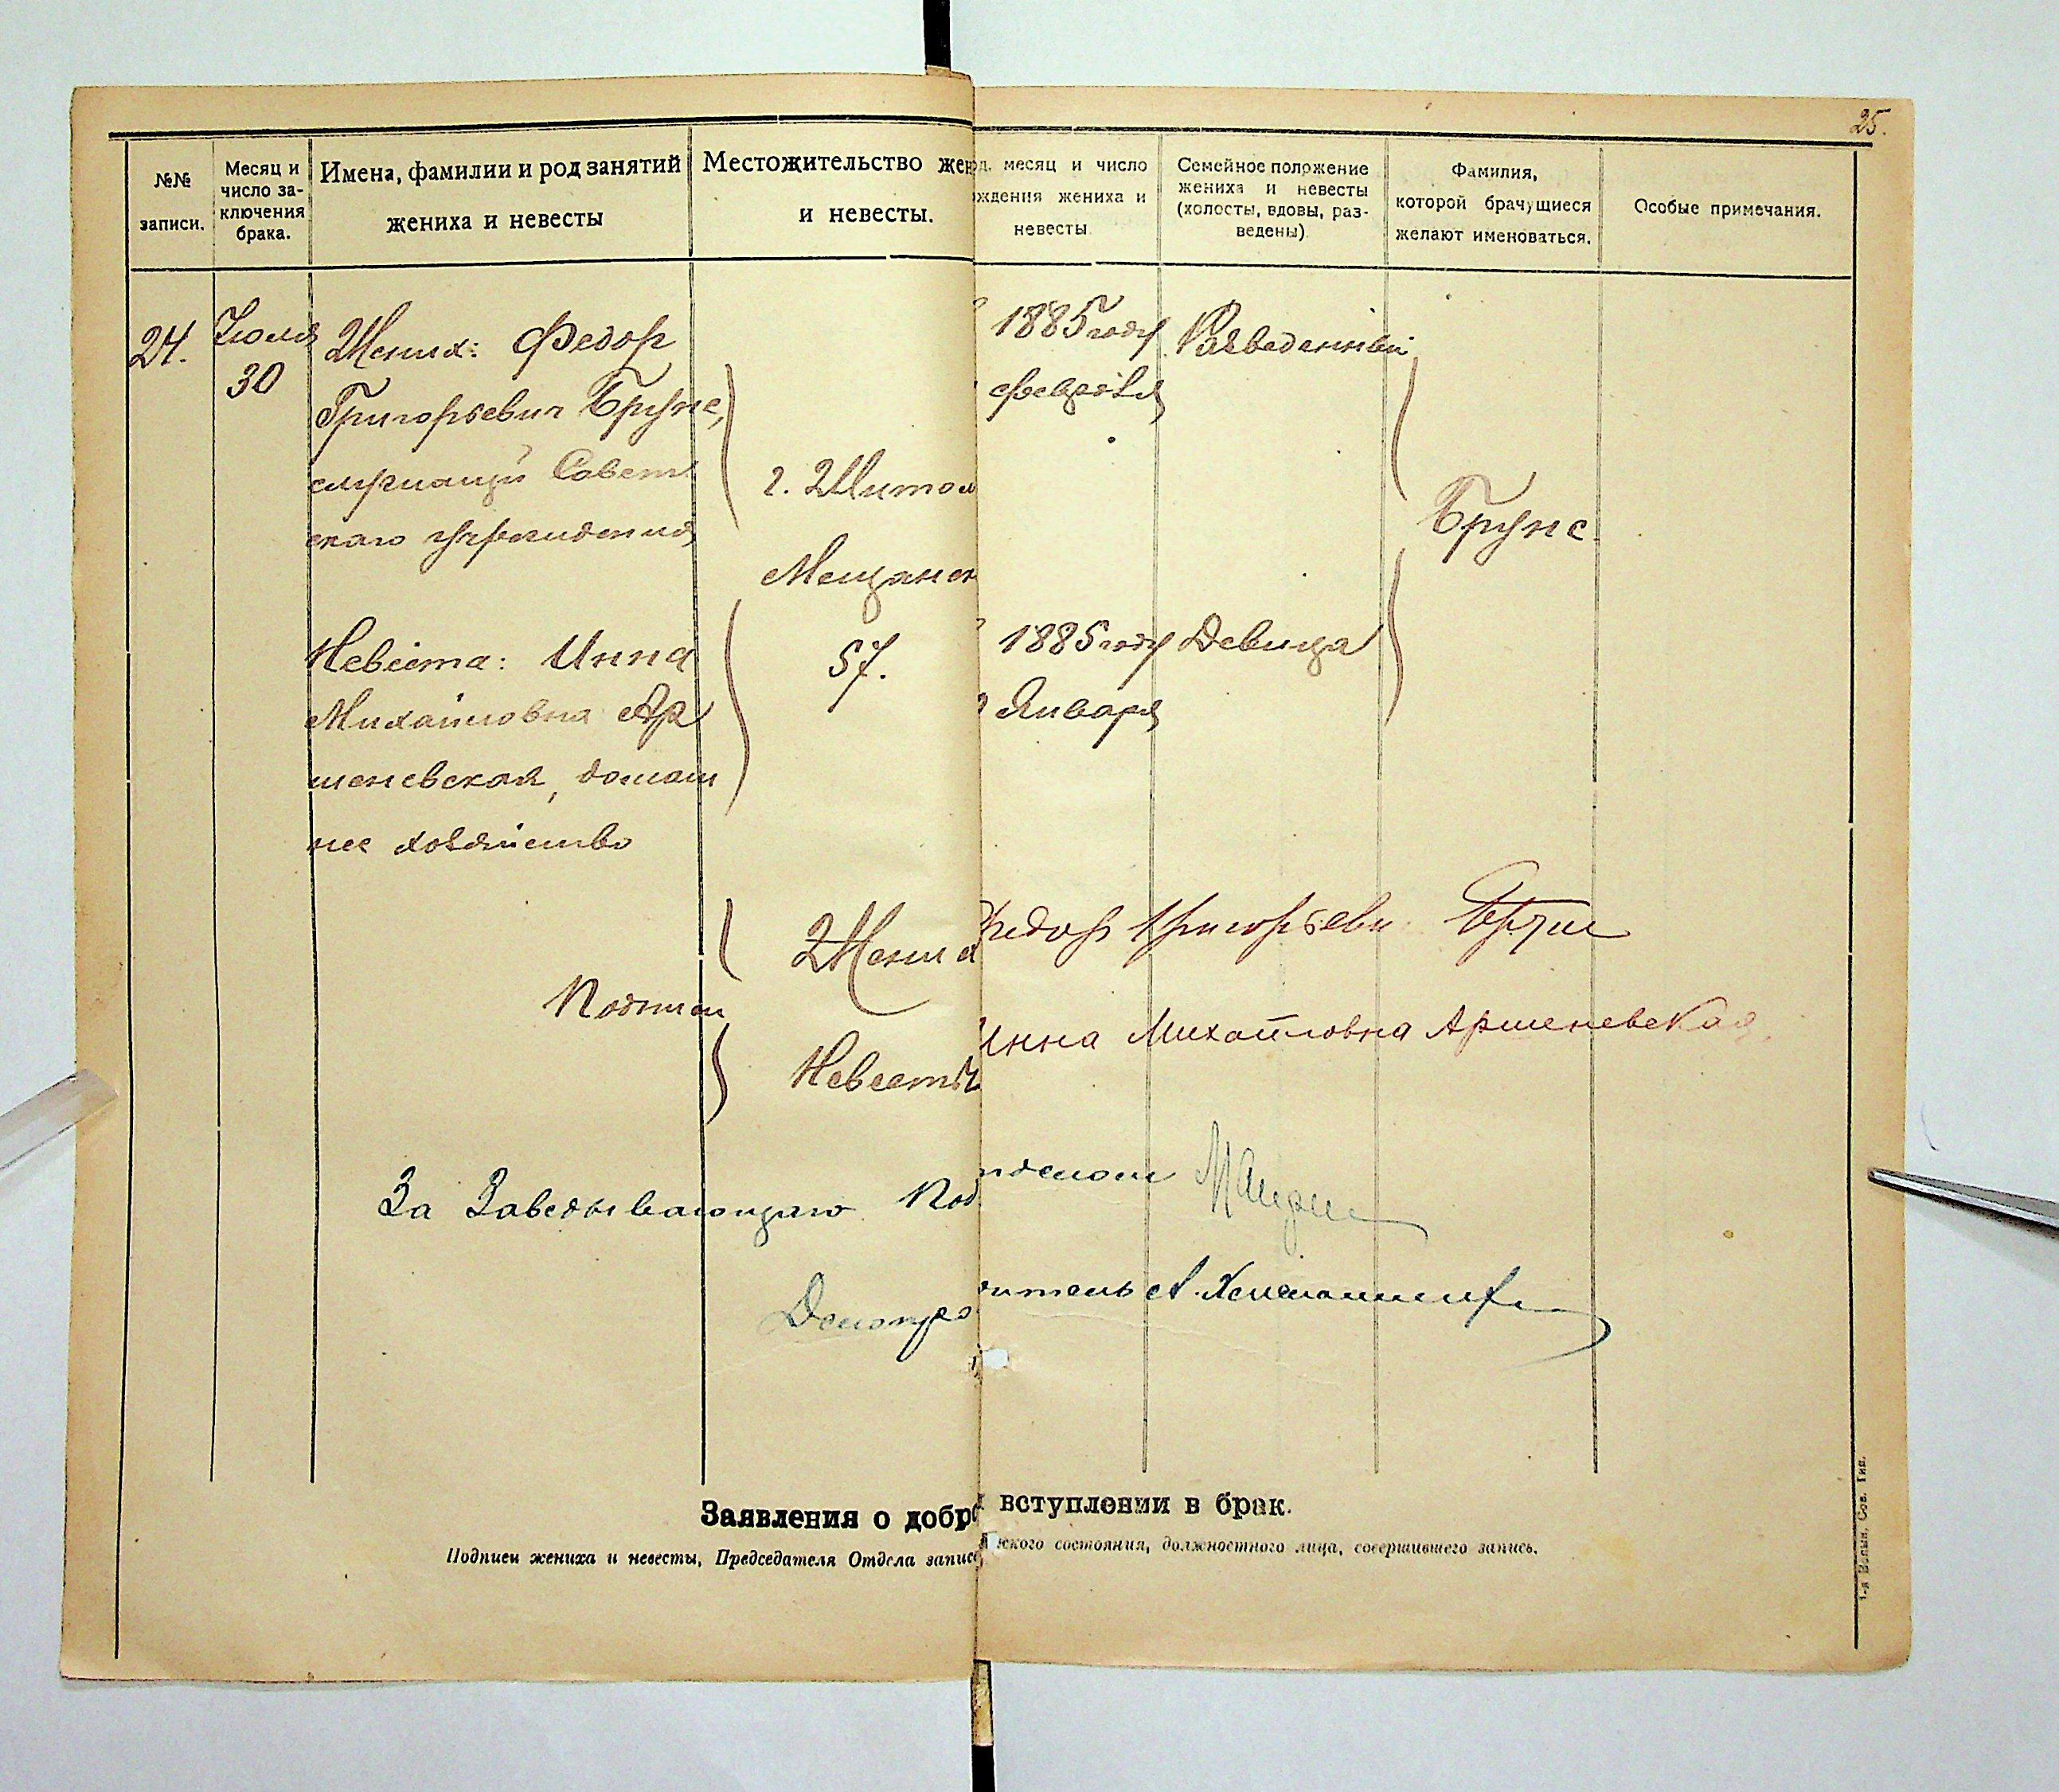 25.
№№ записи.
Месяц и число заключения брака.
Имена, фамилии и род занятий жениха и невесты
Местожительство жен
и невесты.
од, месяц и число
ждения жениха и
невесты
Семейное положение
жениха и невесты
(холосты, вдовы, раз-
ведены)
Фамилия,
которой брачущиеся
желают именоваться.
Особые примечания.
24.
Июля
30
Жених: Федор
Григорьевич Брунс,
служащий Совет
скаго учреждения
г. Житом
Мещанск
57.
1885 году
февраля
Разведенный
Брунс.
Невеста: Инна
Михайловна Ар
шеневская, домаш
нее хозяйство
1885 году
Января
Девица
Подписи
Жених
Федор Григорьевич Брунс
Невесты
Инна Михайловна Аршеневская
За Заведывающаго Под
Делопро
дитель А.
Заявления о добр
вступлении в брак.
Подписи жениха и невесты, Председателя Отдела записе
ского состояния, должностного лица, совершившего запись.
1-я Волын. Сов. Тип.